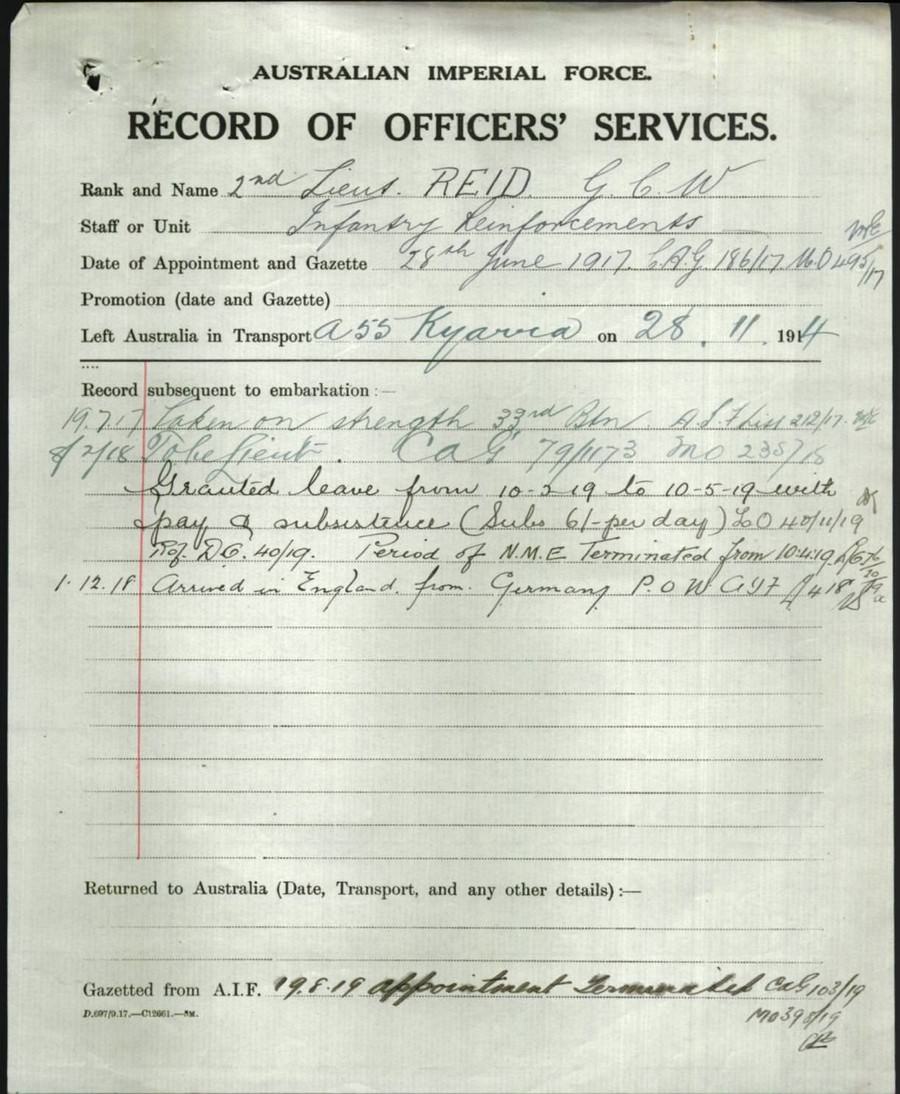 AUSTRALIAN IMPERIAL FORCE.
RECORD OF OFFICERS' SERVICES.
Rank and Name 2nd Lieut. REID. G. C. W
Staff or Unit Infantry Reinforcements
Date of Appointment and Gazette 28th June 1917. C.A.G. 186/17 M.O 495/17
Promotion (date and Gazette)
Left Australia in Transport A 55 Kyarra on 28. 11. 1914
Record subsequent to embarkation :—
19.7.17 Taken on strength 33rd Btn. A.I.F List 212/17.
To be Lieut. CaG 79/1173 MO 235/18
Granted leave from 10-2-19 to 10-5-19 with
pay & subsistence (Subs 6/- per day) LO 40/11/19
D.C. 40/19. Period of N.M.E Terminated from 10.4.19.
1.12.18 Arrived in England. from. Germany P.O W AIF 418
Returned to Australia (Date, Transport, and any other details) :—
Gazetted from A.I.F. 19.8.19 appointment Terminated CaG 103/19
MO 398/19
D.697/9.17.—C12661.—5M.